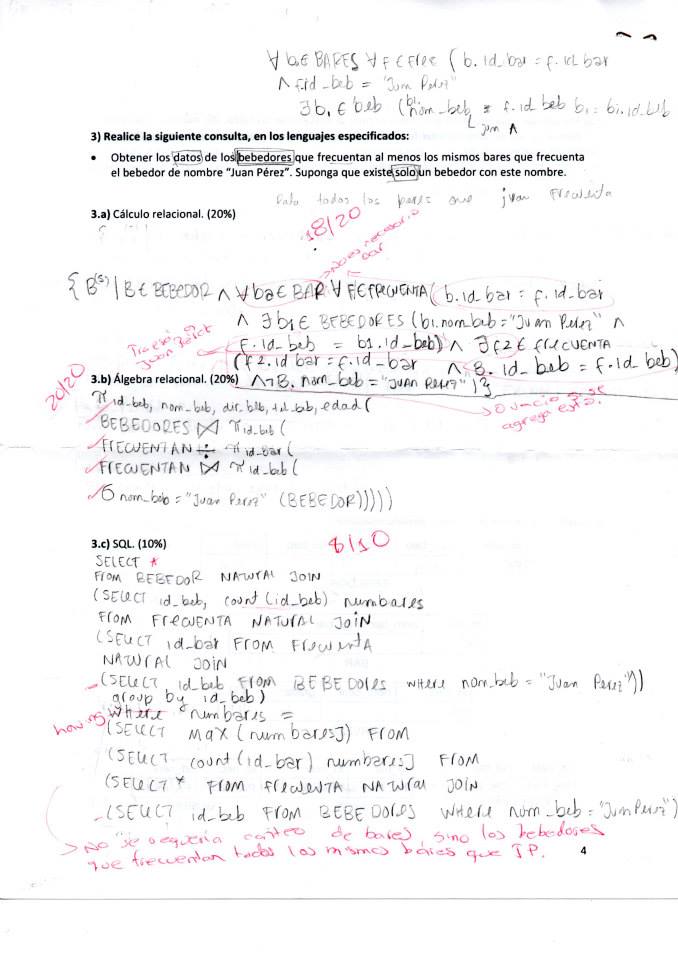 ∀ b ∈ BARES ∀ f ∈ frec ( b.id_bar = f.id bar
∧ f.id_beb = "Juan Perez"
∃ b₁ ∈ beb ( b1.nom_beb = f.id beb b₁ = b1.id_beb
juan ∧
3) Realice la siguiente consulta, en los lenguajes especificados:
• Obtener los datos de los bebedores que frecuentan al menos los mismos bares que frecuenta
el bebedor de nombre "Juan Pérez". Suponga que existe solo un bebedor con este nombre.
todos los bares que juan frecuenta
3.a) Cálculo relacional. (20%)
18/20
No es necesario
{ B(s) | B ∈ BEBEDOR ∧ ∀ ba ∈ BAR ∀ f ∈ FRECUENTA ( b.id_bar = f.id_bar
∧ ∃ b1 ∈ BEBEDORES ( b1.nom_beb = "Juan Perez" ∧
f.id_beb = b1.id_beb) ∧ ∃ f2 ∈ frecuenta
Juan
(f2.id bar = f.id_bar ∧ B.id_beb = f.id beb)
∧ ¬ B.nom_beb = "JUAN Perez" ) }
20/20
3.b) Álgebra relacional. (20%)
O vacío si se
agrega esto.
π id_beb, nom_beb, dir_beb, tel_beb, edad (
BEBEDORES ⋈ π id_beb (
FRECUENTAN ÷ π id_bar (
FRECUENTAN ⋈ π id_beb (
σ nom_beb = "Juan Perez" (BEBEDOR)))))
3.c) SQL. (10%)
8/10
SELECT *
From BEBEDOR NATURAL JOIN
(SELECT id_beb, count (id_beb) numbares
From FRECUENTA NATURAL JOIN
(SELECT id_bar FROM Frecuenta
NATURAL JOIN
(SELECT id_beb FROM BEBEDORES where nom_beb = "Juan Perez"))
group by id_beb)
having where numbares =
(SELECT MAX (numbaresJ) FROM
(SELECT count (id_bar) numbaresJ FROM
(SELECT * FROM frecuenta NATURAL JOIN
(SELECT id_beb FROM BEBEDORES where nom_beb = "Juan Perez")
No se requería conteo de bares sino los bebedores
que frecuentan todos los mismos bares que JP.
4